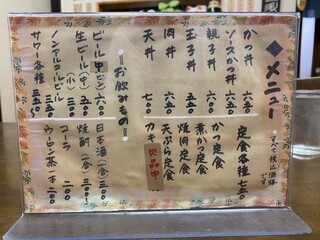 ◆メニュー
すべて税込価格です
かつ丼 六五〇
ソースかつ丼 六五〇
親子丼 六〇〇
玉子丼 六五〇
肉丼 六五〇
天丼 七〇〇
定食各種 七五〇
かつ定食
煮かつ定食
焼肉定食
天ぷら定食
カキ
欠品中
＝お飲みもの＝
ビール(中ビン) 六〇〇
生ビール(中) 五〇〇
(小) 三〇〇
ノンアルコールビール 三五〇
サワー各種 三五〇
日本酒(一合) 三〇〇
焼酎(一合) 三〇〇
コーラ 二〇〇
ウーロン茶一本 二〇〇